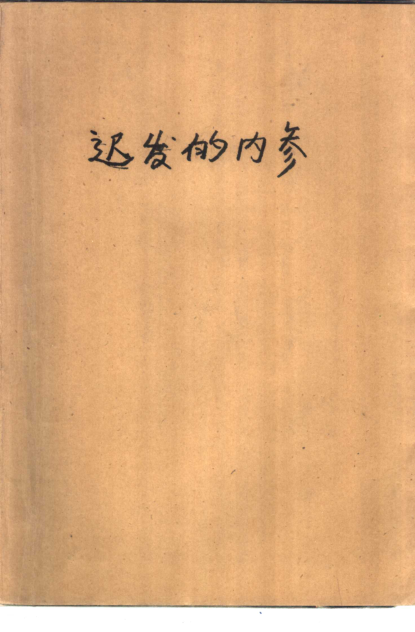 迟发的内参